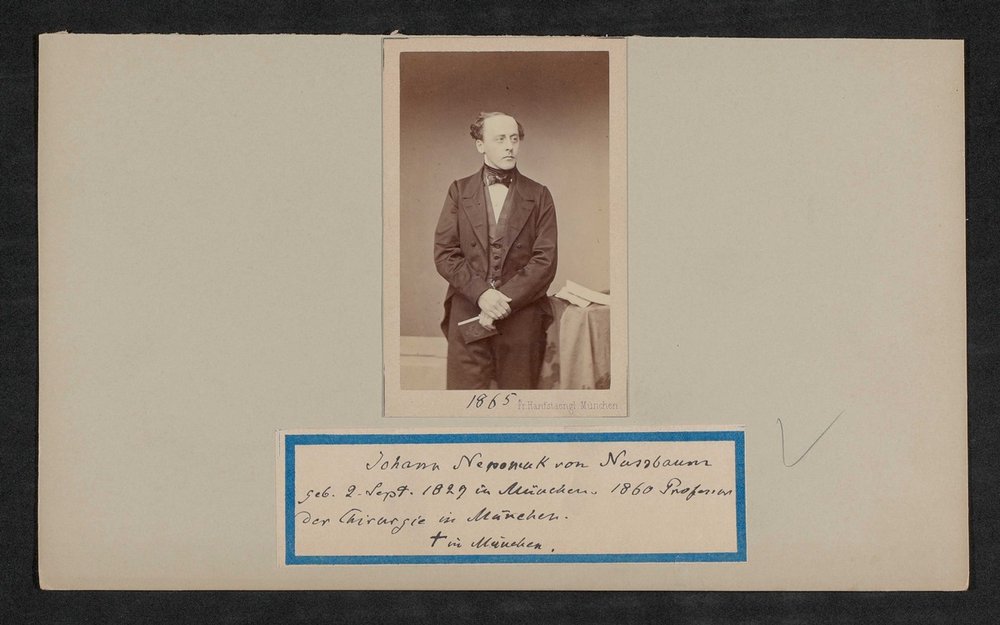 1865 Fr. Hanfstaengl München
Johann Nepomuk von Nussbaum
geb. 2. Sept. 1829 in München. 1860 Professor
der Chirurgie in München.
† in München.